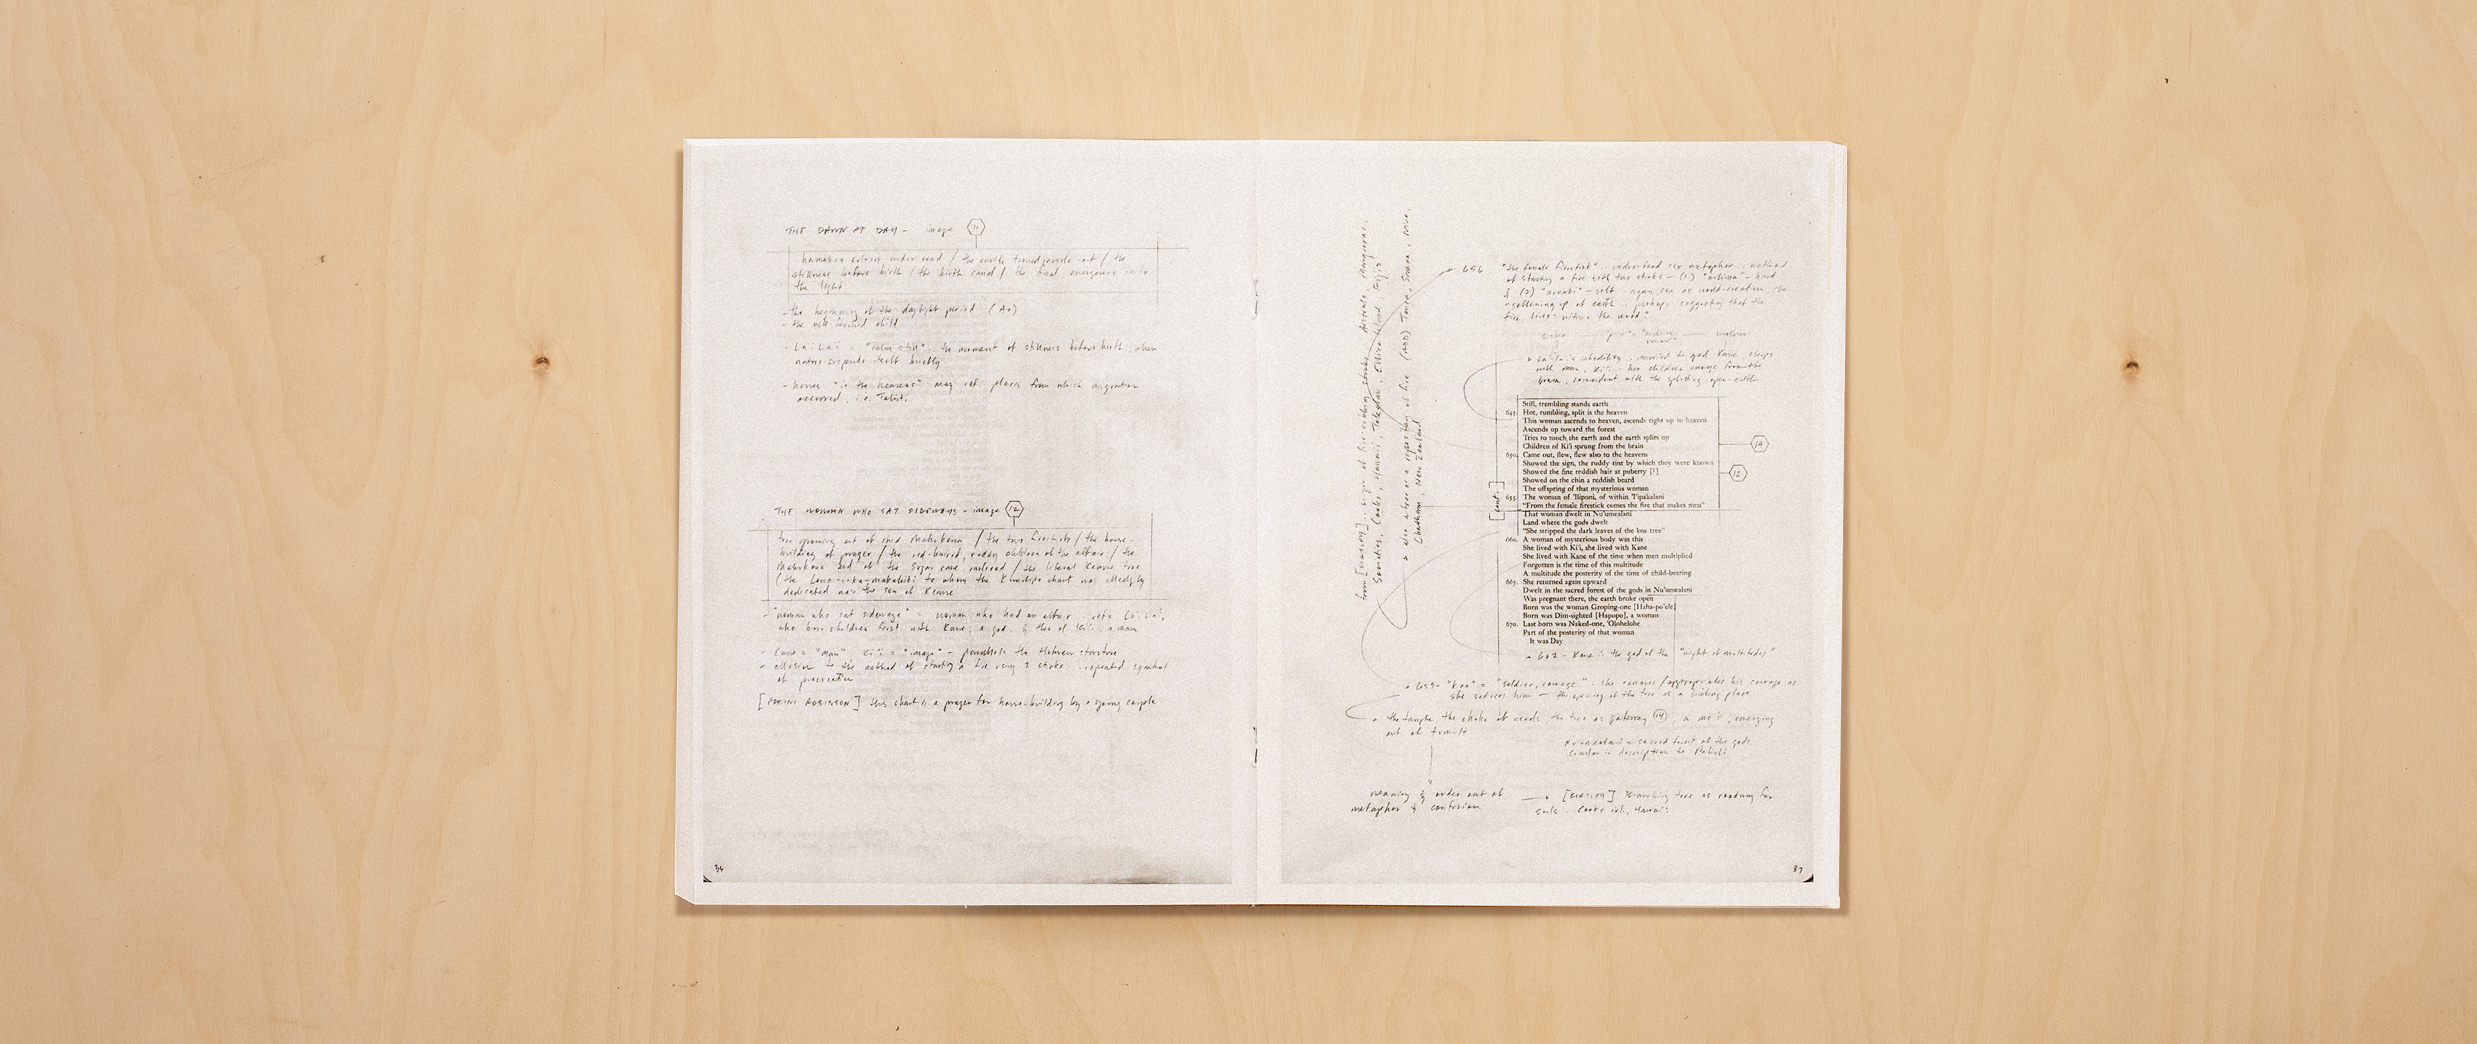 THE DAWN OF DAY - image 11
culvert under road / the earth turned inside out / the
stillness before birth / the birth canal / the final emergence into
the light
- the beginning of the daylight period (Ao)
- the well-formed child
- La'i La'i = "calm, still" the moment of stillness before birth when
nature suspends itself briefly
- hence "in the heavens" may ref place from which migration
occurred, i.e. Tahiti
THE WOMAN WHO SAT SIDEWAYS - image 12
tree growing out of Mahukona / the two firesticks / the house-
building prayer / the red-haired, ruddy children of the affair / the
Mahukona end of the sugar cane railroad / the literal Keawe tree
/ the Lono-i-ka-makahiki to whom the Kumulipo chant was
dedicated was the son of Keawe
- "woman who sat sideways" = woman who had an affair . refs La'i La'i,
who bore children first with Kane, a god, & then w/ Ki'i, a man
- Kane = "man" Ki'i = "image" - parallels the Hebrew
- allusion to the method of starting a fire using 2 sticks . repeated symbol
of procreation
[ ROBINSON] this chant is a prayer for house-building by a young couple
36
656
"the female firestick" understood sex metaphor : method
of starting a fire with two sticks - (1) - hard
& (2) - soft again sex as world-creation, the
softening up of earth . perhaps suggesting that the
fire lives within the wood."
La'i La'i's infidelity . married to god Kane, sleeps
with man, Ki'i . her children emerge from the
brain, coincident with the splitting-open-earth
Still, trembling stands earth
645. Hot, rumbling, split is the heaven
This woman ascends to heaven, ascends right up to heaven
Ascends up toward the forest
Tries to touch the earth and the earth splits up
Children of Ki'i sprung from the brain
14
650. Came out, flew, flew also to the heavens
Showed the sign, the ruddy tint by which they were known
Showed the fine reddish hair at puberty [?]
12
Showed on the chin a reddish beard
The offspring of that mysterious woman
655. The woman of 'Iliponi, of within 'I'ipakalani
"From the female firestick comes the fire that makes men"
[cont.]
That woman dwelt in Nu'umealani
Land where the gods dwelt
"She stripped the dark leaves of the koa tree"
660. A woman of mysterious body was this
She lived with Ki'i, she lived with Kane
She lived with Kane of the time when men multiplied
Forgotten is the time of this multitude
A multitude the posterity of the time of child-bearing
665. She returned again upward
Dwelt in the sacred forest of the gods in Nu'umealani
Was pregnant there, the earth broke open
Born was the woman Groping-one [Haha-po'ele]
Born was Dim-sighted [Hapopo], a woman
670. Last born was Naked-one, 'Olohelohe
Part of the posterity of that woman
It was Day
- 662 - Kane is the god of the "night of multitudes"
659 - "koa" = "soldier, courage" . she removes/appropriates his courage as
she seduces him — the opening of the tree as a hiding place
the choke of weeds, the tree as gateway 14, emerging
out of tumult
Nu'umealani = sacred forest of the gods
similar in description to
meaning & order out of
metaphor & confusion
→ [ ] branching tree as roadway for
souls . Cooks ish, Hawai'i
also a tree as a repository of fire (wood) Tonga, Samoa, Niue,
Chatham, New Zealand
37